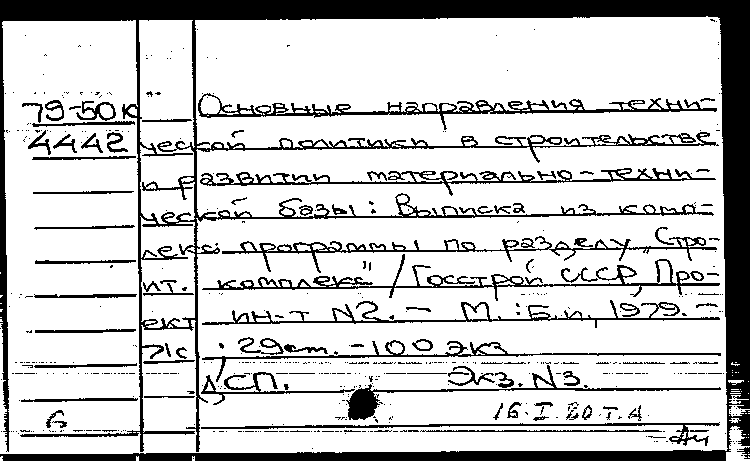 79-50к Основные направления техни-
4442 ческой политики в строительстве
и развитии материально-техни-
ческой базы: Выписка из комп-
лекс. программы по разделу „Стро-
ит. комплекс" / Госстрой СССР, Про-
ект ин-т N2. – М.: Б.и., 1979. –
71с ; 29см. – 100 экз
ДСП. Экз. N3.
6 16.I.80 т.